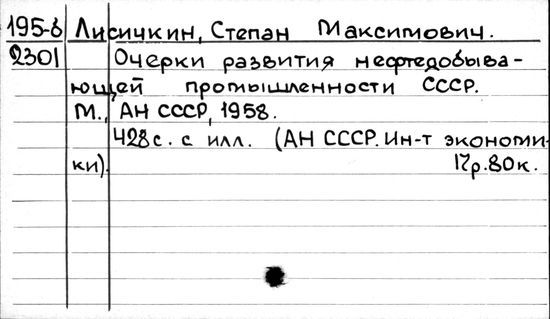 195-8 Лисичкин, Степан Максимович.
2301 Очерки развития нефтедобыва-
ющей промышленности СССР.
М., АН СССР, 1958.
428с. с илл. (АН СССР. Ин-т экономи-
ки). 17р.80к.